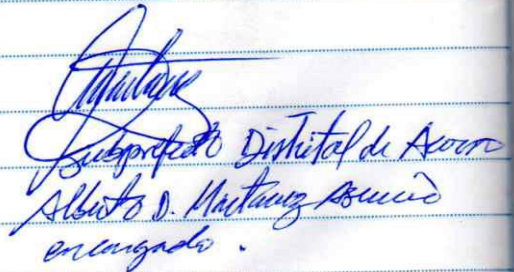 Subprefecto Distrital de Acoro
Alberto D. Martinez Asencio
encargado .